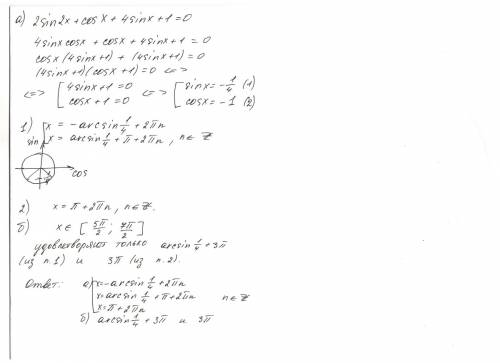 а) 2sin2x + cosx + 4sinx + 1 = 0
4sinxcosx + cosx + 4sinx + 1 = 0
cosx(4sinx+1) + (4sinx+1) = 0
(4sinx+1)(cosx+1) = 0 <=>
<=> [ 4sinx+1 = 0 <=> [ sinx = -1/4 (1)
cosx+1 = 0 cosx = -1 (2)
1) [ x = -arcsin 1/4 + 2πn
x = arcsin 1/4 + π + 2πn, n∈Z
sin
-1/4
cos
2) x = π + 2πn, n∈Z.
б) x∈[5π/2; 7π/2]
удовлетворяют только arcsin 1/4 + 3π
(из п.1) и 3π (из п.2).
Ответ: а) [ x = -arcsin 1/4 + 2πn
x = arcsin 1/4 + π + 2πn n∈Z
x = π + 2πn
б) arcsin 1/4 + 3π и 3π